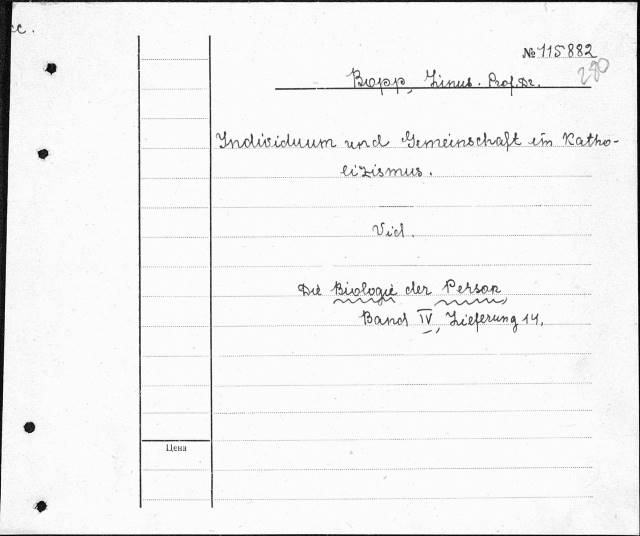 сс.
№ 115882
280
Bopp, Linus. Prof. Dr.
Individuum und Gemeinschaft im Katho-
lizismus.
Vid.
Die Biologie der Person
Band IV, Lieferung 14.
Цена